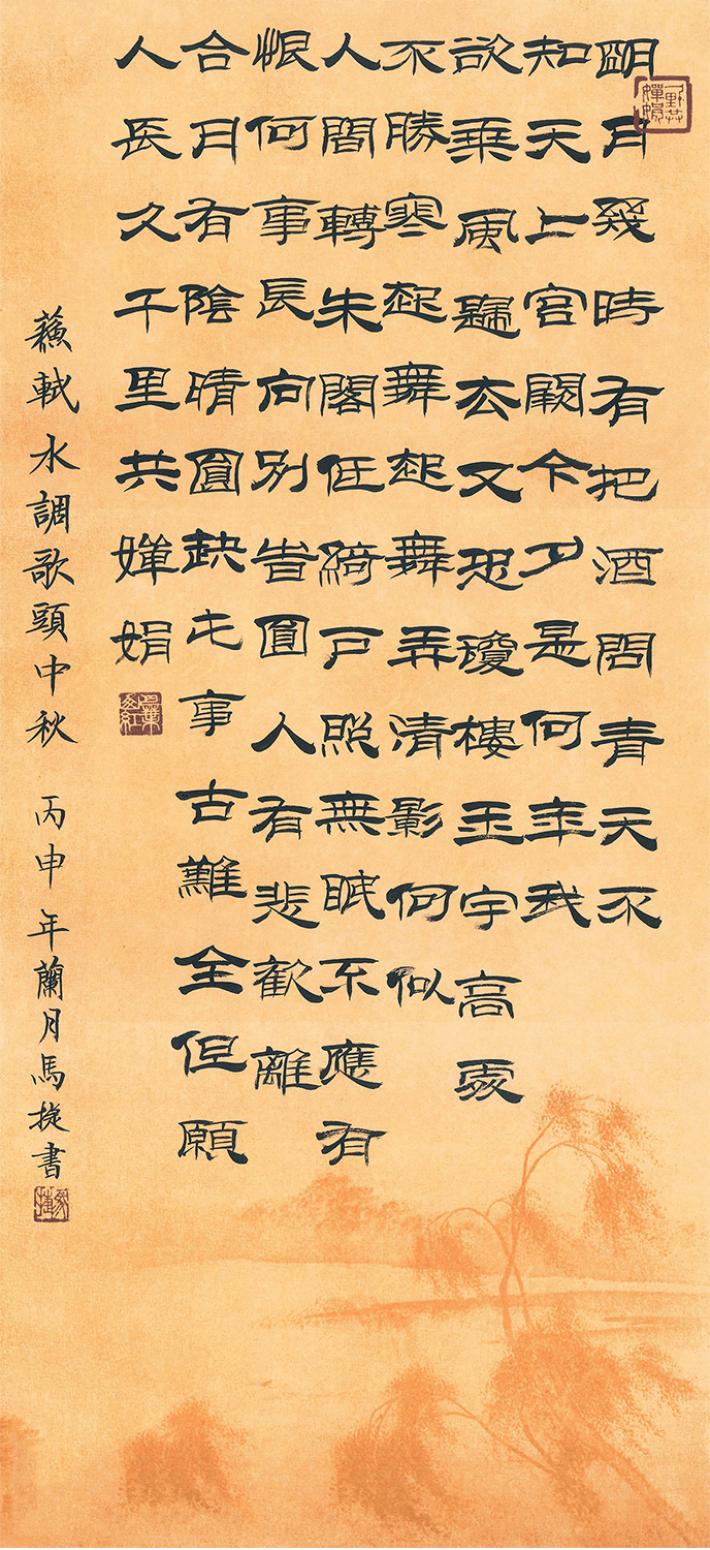 千里共嬋娟
朙月幾時有把酒問青天不
知天上宮闕今夕是何年我
欲乘風歸去又恐瓊樓玉宇高處
不勝寒起舞起舞弄清影何似
人間轉朱閣低綺戶照無眠不應有
恨何事長向別旹圓人有悲歡離
合月有陰晴圓缺此事古難全但願
人長久千里共嬋娟
蘓軾水調歌頭中秋 丙申年蘭月馬捷書
馬捷